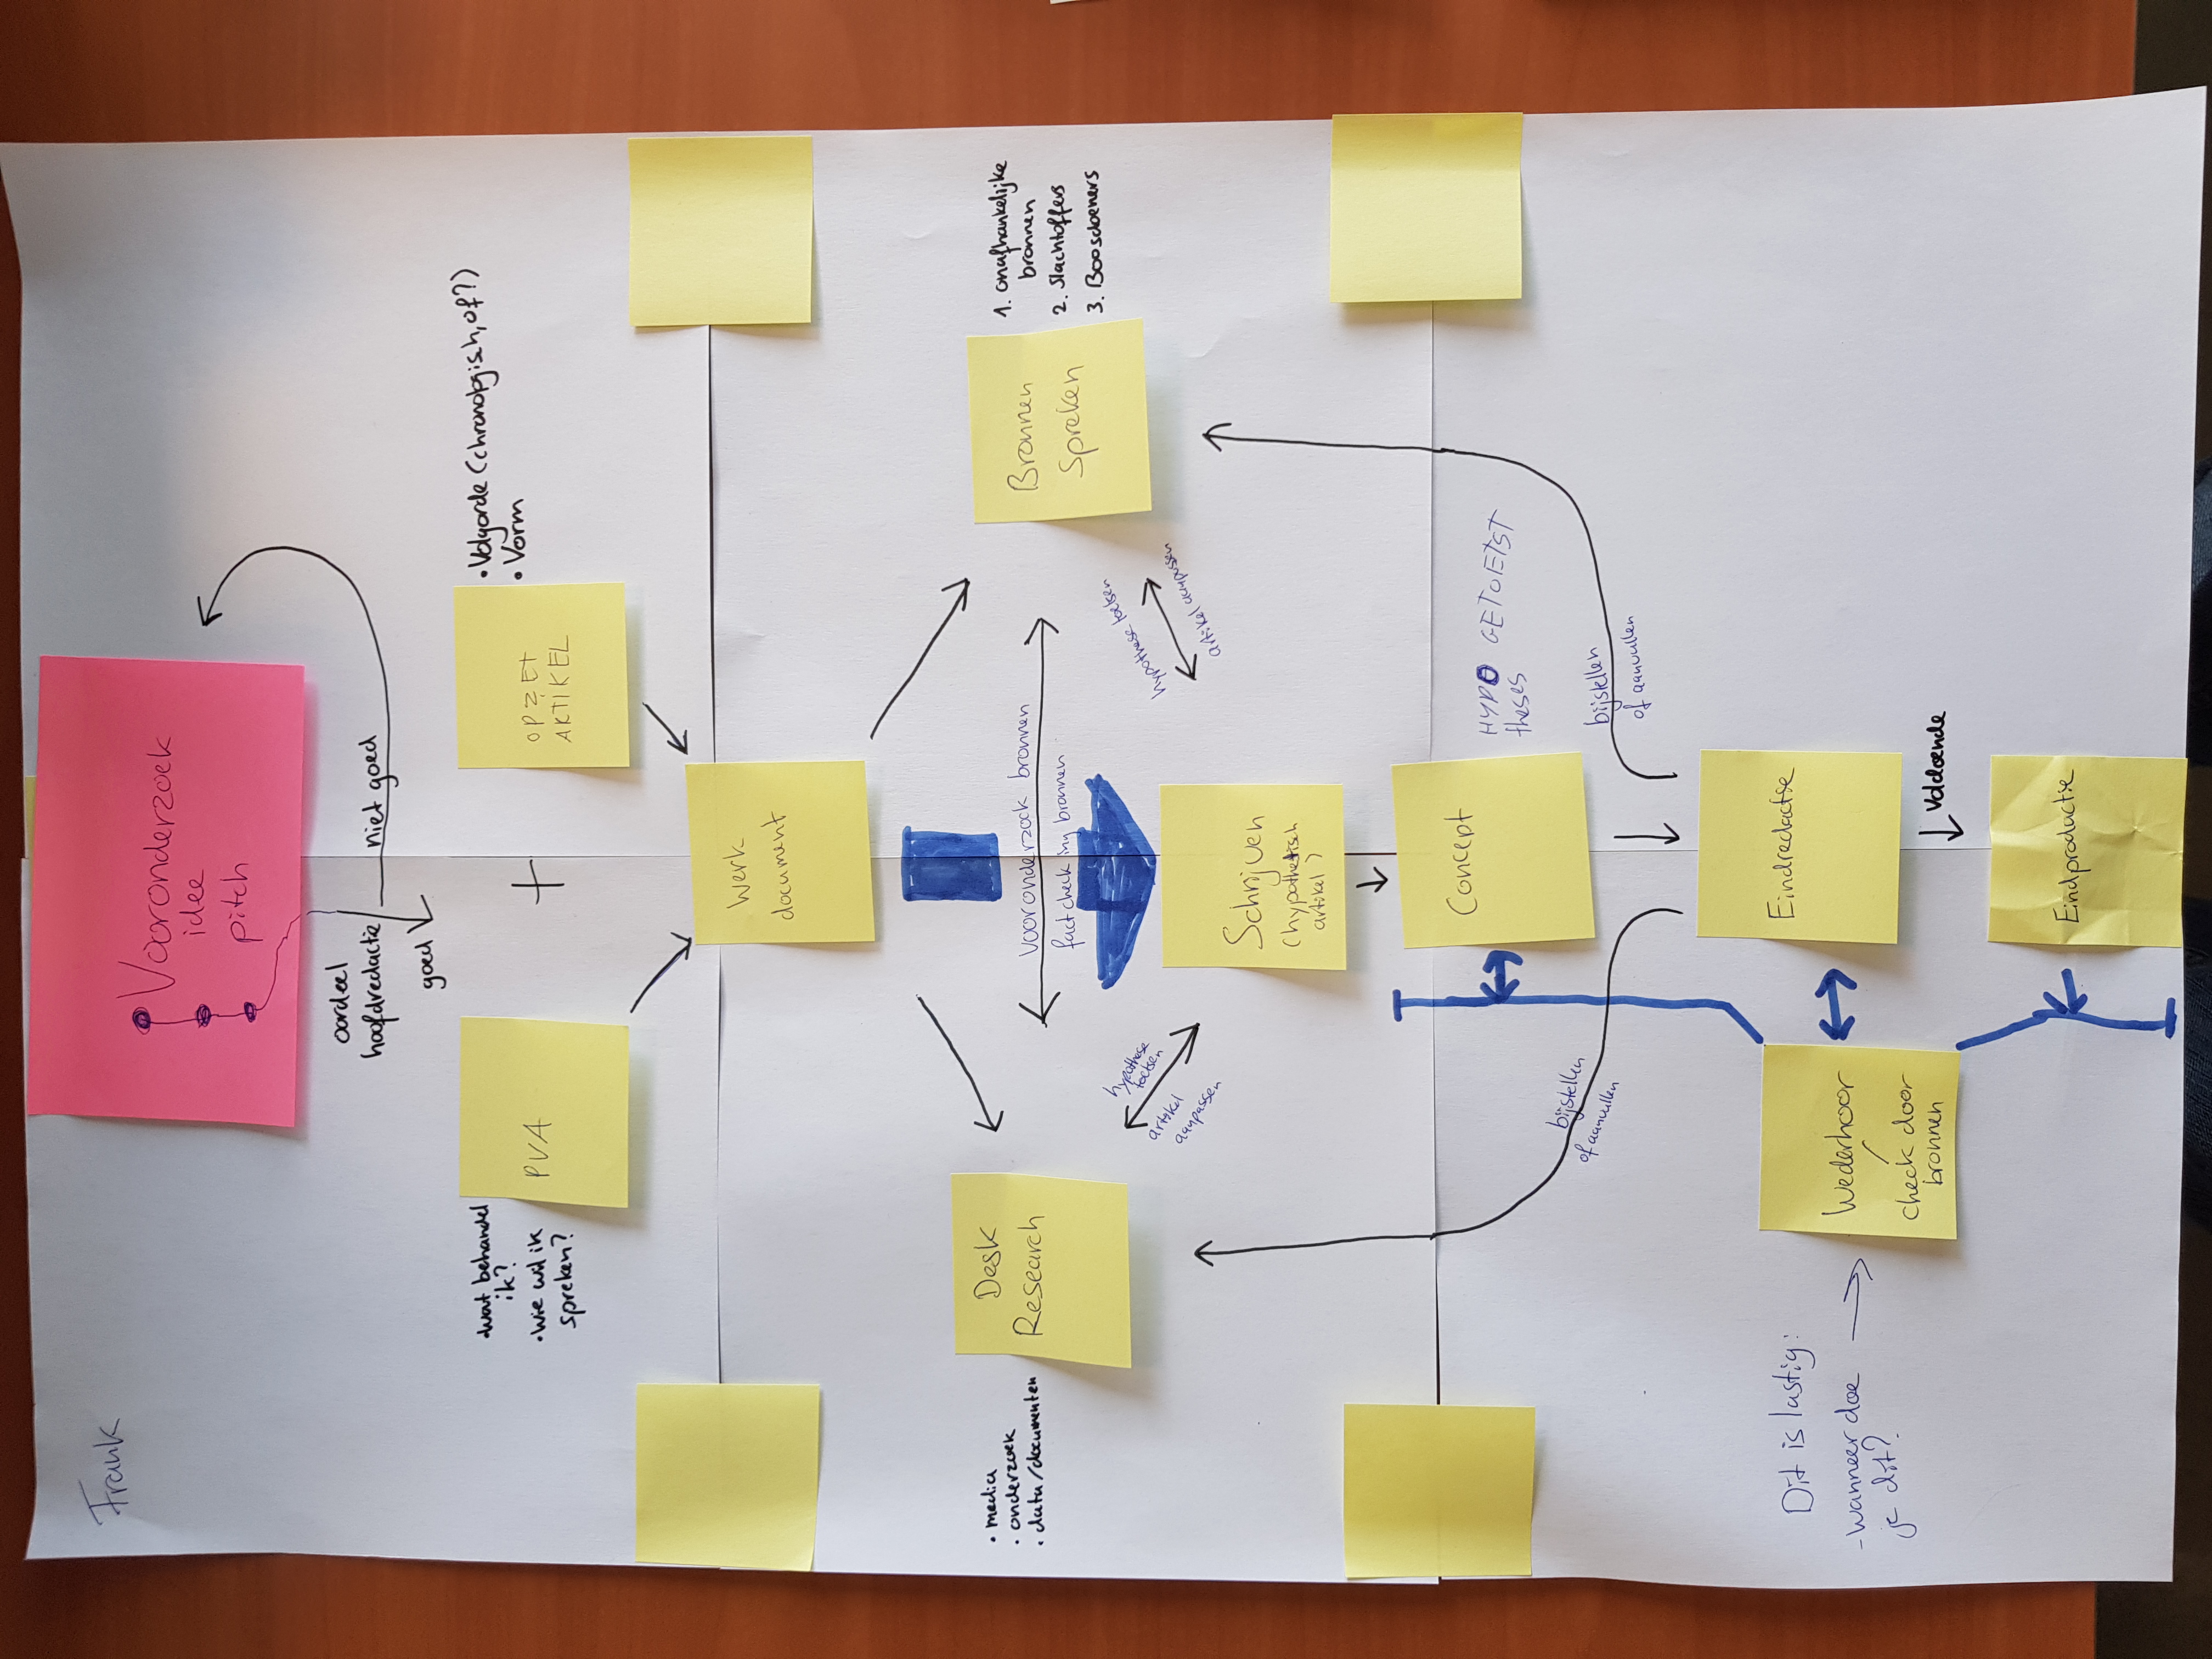 Frank
Vooronderzoek
idee
pitch
oordeel
hoofdredactie
niet goed
goed
• wat behandel
ik?
• Wie wil ik
spreken?
PVA
+
OPZET
ARTIKEL
• Volgorde (chronologisch, of?)
• Vorm
Werk
document
• media
• onderzoek
• data/documenten
Desk
Research
vooronderzoek bronnen
fact checking bronnen
Bronnen
Spreken
1. onafhankelijke
bronnen
2. Slachtoffers
3. Boosdoeners
hypothese
toetsen
artikel
aanpassen
hypothese toetsen
artikel aanpassen
Schrijven
(hypothetisch
artikel)
Concept
HYPO GETOETST
theses
bijstellen
of aanvullen
bijstellen
of aanvullen
Eindredactie
Dit is lastig:
- wanneer doe
je dit?
Wederhoor
/
check door
bronnen
Voldoende
Eindproductie